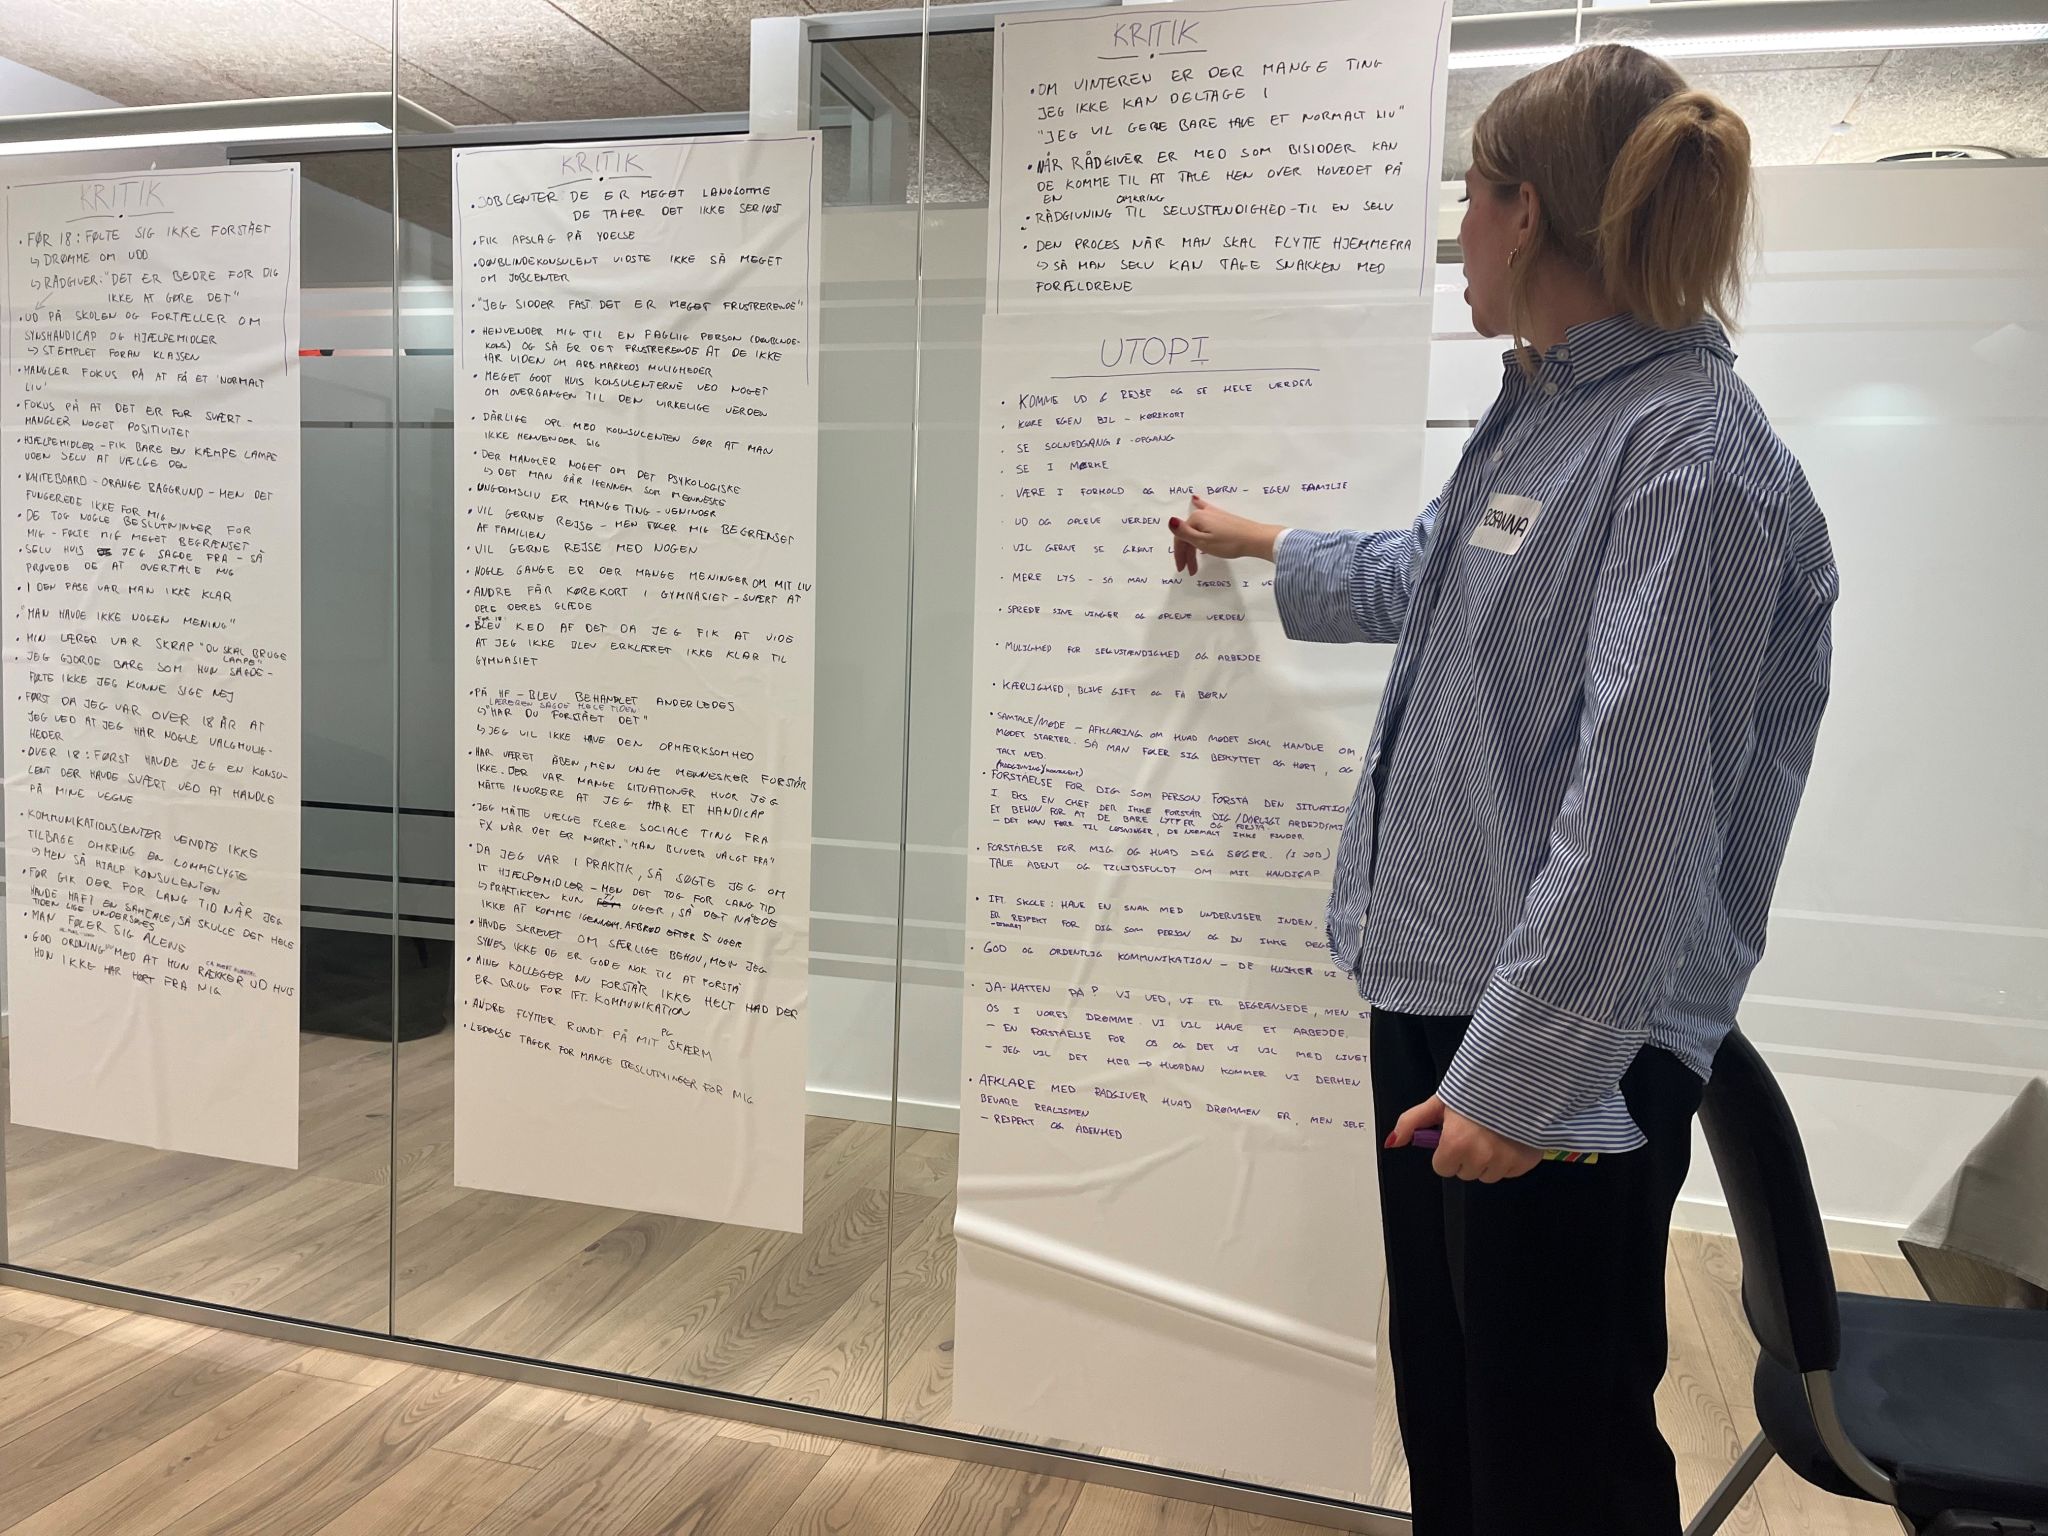 KRITIK
• FØR 18: FØLTE SIG IKKE FORSTÅET
↳ DRØMME OM UDD
↳ RÅDGIVER: "DET ER BEDRE FOR DIG
IKKE AT GØRE DET"
• UD PÅ SKOLEN OG FORTÆLLER OM
SYNSHANDICAP OG HJÆLPEMIDLER
↳ STEMPLET FORAN KLASSEN
• MANGLER FOKUS PÅ AT FÅ ET 'NORMALT
LIV'
• FOKUS PÅ AT DET ER FOR SVÆRT -
MANGLER NOGET POSITIVITET
• HJÆLPEMIDLER - FIK BARE EN KÆMPE LAMPE
UDEN SELV AT VÆLGE DEN
• WHITEBOARD - ORANGE BAGGRUND - MEN DET
FUNGEREDE IKKE FOR MIG
• DE TOG NOGLE BESLUTNINGER FOR
MIG - FØLTE MIG MEGET BEGRÆNSET
• SELV HVIS JEG SAGDE FRA - SÅ
PRØVEDE DE AT OVERTALE MIG
• I DEN FASE VAR MAN IKKE KLAR
• "MAN HAVDE IKKE NOGEN MENING"
• MIN LÆRER VAR SKRAP "DU SKAL BRUGE
LAMPE"
• JEG GJORDE BARE SOM HUN SAGDE -
FØLTE IKKE JEG KUNNE SIGE NEJ
• FØRST DA JEG VAR OVER 18 ÅR AT
JEG VED AT JEG HAR NOGLE VALGMULIG-
HEDER
• OVER 18: FØRST HAVDE JEG EN KONSU-
LENT DER HAVDE SVÆRT VED AT HANDLE
PÅ MINE VEGNE
• KOMMUNIKATIONSCENTER VENDTE IKKE
TILBAGE OMKRING EN LOMMELYGTE
↳ MEN SÅ HJALP KONSULENTEN
• FØR GIK DER FOR LANG TID NÅR JEG
HAVDE HAFT EN SAMTALE, SÅ SKULLE DET HELE
TIDEN LIGE UNDERSØGES
• MAN FØLER SIG ALENE
• GOD ORDNING MED AT HUN RÆKKER UD HVIS
HUN IKKE HAR HØRT FRA MIG
KRITIK
• JOBCENTER DE ER MEGET LANGSOMME
DE TAGER DET IKKE SERIØST
• FIK AFSLAG PÅ YDELSE
• DØVBLINDEKONSULENT VIDSTE IKKE SÅ MEGET
OM JOBCENTER
• "JEG SIDDER FAST. DET ER MEGET FRUSTRERENDE"
• HENVENDER MIG TIL EN FAGLIG PERSON (DØVBLINDE-
KONS) OG SÅ ER DET FRUSTRERENDE AT DE IKKE
HAR VIDEN OM ARB MARKEDS MULIGHEDER
• MEGET GODT HVIS KONSULENTERNE VED NOGET
OM OVERGANGEN TIL DEN VIRKELIGE VERDEN
• DÅRLIGE OPL. MED KONSULENTEN GØR AT MAN
IKKE HENVENDER SIG
• DER MANGLER NOGET OM DET PSYKOLOGISKE
↳ DET MAN GÅR IGENNEM SOM MENNESKE
• UNGDOMSLIV ER MANGE TING - VENINDER
• VIL GERNE REJSE - MEN FØLER MIG BEGRÆNSET
AF FAMILIEN
• VIL GERNE REJSE MED NOGEN
• NOGLE GANGE ER DER MANGE MENINGER OM MIT LIV
• ANDRE FÅR KØREKORT I GYMNASIET - SVÆRT AT
DELE DERES GLÆDE
FØR 18
• BLEV KED AF DET DA JEG FIK AT VIDE
AT JEG IKKE BLEV ERKLÆRET IKKE KLAR TIL
GYMNASIET
• PÅ HF - BLEV BEHANDLET ANDERLEDES
LÆREREN SAGDE HELE TIDEN
↳ "HAR DU FORSTÅET DET"
↳ JEG VIL IKKE HAVE DEN OPMÆRKSOMHED
• HAR VÆRET ÅBEN, MEN UNGE MENNESKER FORSTÅR
IKKE. DER VAR MANGE SITUATIONER HVOR JEG
MÅTTE IGNORERE AT JEG HAR ET HANDICAP
• JEG MÅTTE VÆLGE FLERE SOCIALE TING FRA
FX NÅR DET ER MØRKT. "MAN BLIVER VALGT FRA"
• DA JEG VAR I PRAKTIK, SÅ SØGTE JEG OM
IT HJÆLPEMIDLER - MEN DET TOG FOR LANG TID
↳ PRAKTIKKEN KUN UGER, SÅ DET NÅEDE
IKKE AT KOMME IGENNEM. AFBRØD EFTER 5 UGER
• HAVDE SKREVET OM SÆRLIGE BEHOV, MEN JEG
SYNES IKKE DE ER GODE NOK TIL AT FORSTÅ
• MINE KOLLEGER NU FORSTÅR IKKE HELT HVAD DER
ER BRUG FOR IFT. KOMMUNIKATION
• ANDRE FLYTTER RUNDT PÅ MIT PC SKÆRM
• LEDELSE TAGER FOR MANGE BESLUTNINGER FOR MIG
KRITIK
• OM VINTEREN ER DER MANGE TING
JEG IKKE KAN DELTAGE I
"JEG VIL GERNE BARE HAVE ET NORMALT LIV"
• NÅR RÅDGIVER ER MED SOM BISIDDER KAN
DE KOMME TIL AT TALE HEN OVER HOVEDET PÅ
EN
OMKRING
• RÅDGIVNING TIL SELVSTÆNDIGHED - TIL EN SELV
• DEN PROCES NÅR MAN SKAL FLYTTE HJEMMEFRA
↳ SÅ MAN SELV KAN TAGE SNAKKEN MED
FORÆLDRENE
UTOPI
• KOMME UD & REJSE OG SE HELE VERDEN
• KØRE EGEN BIL - KØREKORT
• SE SOLNEDGANG & -OPGANG
• SE I MØRKE
• VÆRE I FORHOLD OG HAVE BØRN - EGEN FAMILIE
• UD OG OPLEVE VERDEN
• VIL GERNE SE GRØNT
• MERE LYS - SÅ MAN KAN FÆRDES I
• SPREDE SINE VINGER OG OPLEVE VERDEN
• MULIGHED FOR SELVSTÆNDIGHED OG ARBEJDE
• KÆRLIGHED, BLIVE GIFT OG FÅ BØRN
• SAMTALE/MØDE - AFKLARING OM HVAD MØDET SKAL HANDLE OM,
MØDET STARTER. SÅ MAN FØLER SIG BESKYTTET OG HØRT, OG
TALT NED.
• FORSTÅELSE FOR DIG SOM PERSON FORSTÅ DEN SITUATION
I EKS. EN CHEF DER IKKE FORSTÅR DIG/DÅRLIGT ARBEJDSMI
ET BEHOV FOR AT DE BARE LYTTER OG FORSTÅ.
- DET KAN FØRE TIL LØSNINGER, DE NORMALT IKKE FINDER
• FORSTÅELSE FOR MIG OG HVAD JEG SØGER. (I JOB)
TALE ÅBENT OG TILLIDSFULDT OM MIT HANDICAP
• IFT. SKOLE: HAVE EN SNAK MED UNDERVISER INDEN.
ER RESPEKT FOR DIG SOM PERSON OG DU IKKE
• GOD OG ORDENTLIG KOMMUNIKATION - DE HUSKER VI
• JA-HATTEN PÅ? VI VED, VI ER BEGRÆNSEDE, MEN
OS I VORES DRØMME. VI VIL HAVE ET ARBEJDE.
- EN FORSTÅELSE FOR OS OG DET VI VIL MED LIVET
- JEG VIL DET HER → HVORDAN KOMMER VI DERHEN
• AFKLARE MED RÅDGIVER HVAD DRØMMEN ER, MEN SELF.
BEVARE REALISMEN
- RESPEKT OG ÅBENHED
ROSANNA